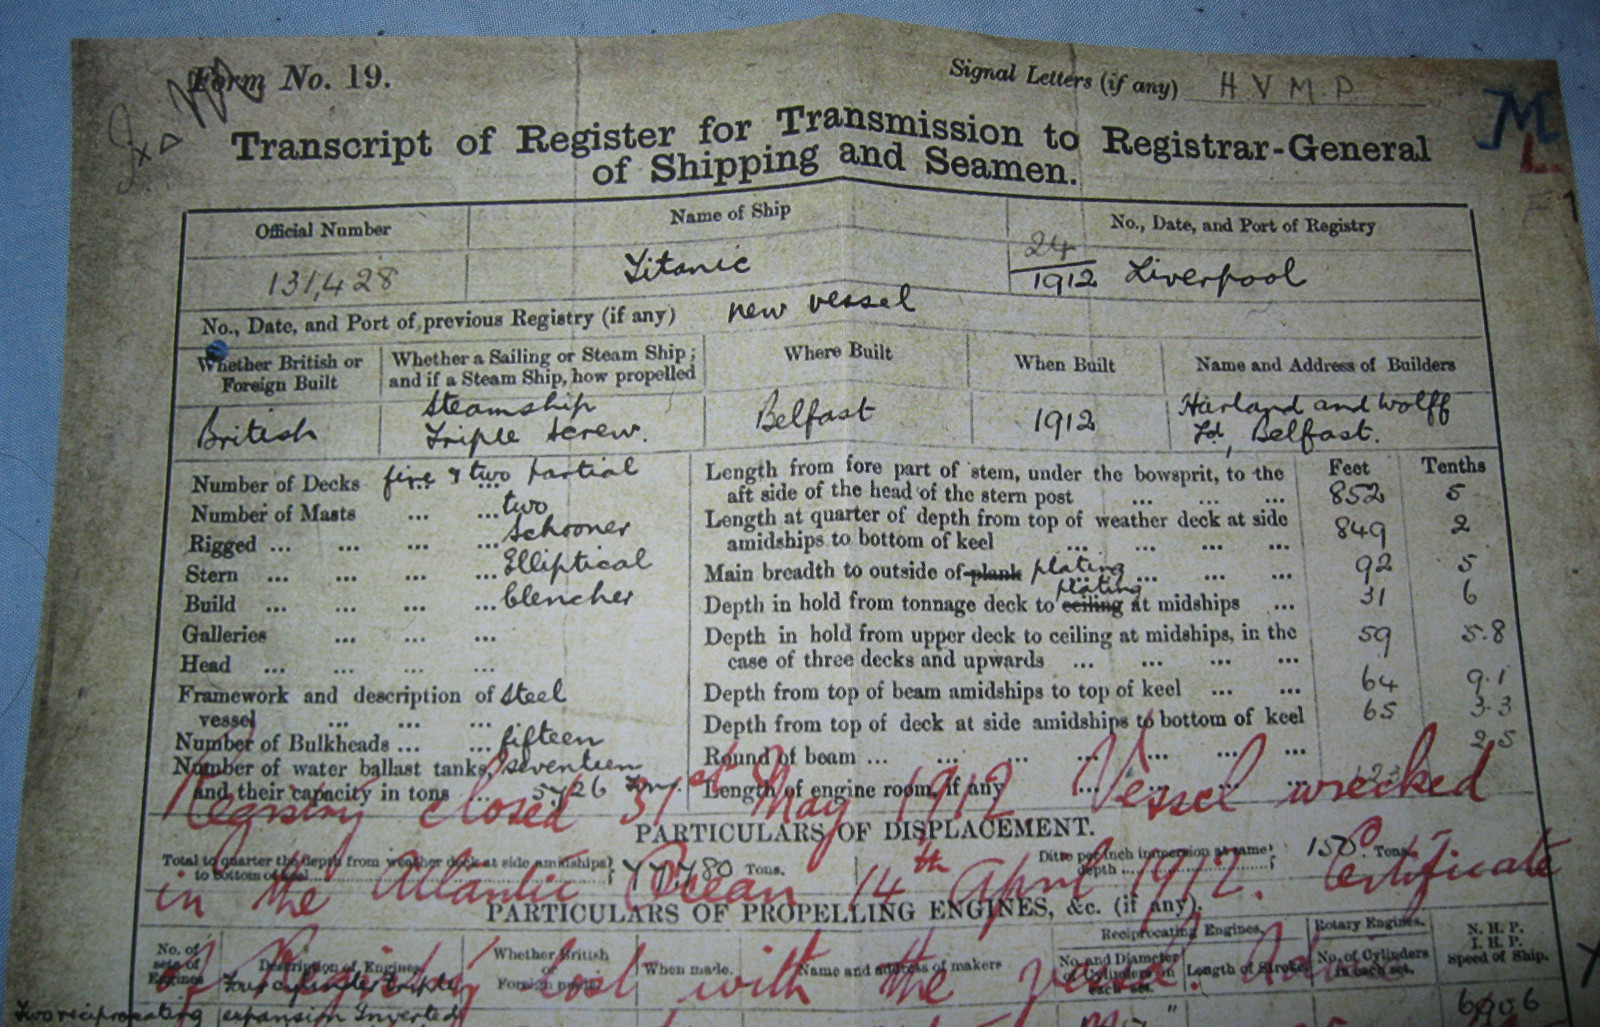 Form No. 19.
Signal Letters (if any) H V M P
M
L
Transcript of Register for Transmission to Registrar-General
of Shipping and Seamen.
Official Number
Name of Ship
No., Date, and Port of Registry
131,428
Titanic
24/1912 Liverpool
No., Date, and Port of previous Registry (if any) new vessel
Whether British or
Foreign Built
Whether a Sailing or Steam Ship;
and if a Steam Ship, how propelled
Where Built
When Built
Name and Address of Builders
British
Steamship
Triple Screw.
Belfast
1912
Harland and Wolff
Ld, Belfast.
Number of Decks five & two partial
Number of Masts ... ... two
Rigged ... ... ... ... Schooner
Stern ... ... ... ... Elliptical
Build ... ... ... ... Clencher
Galleries ... ... ...
Head ... ... ... ...
Framework and description of steel
vessel ... ... ...
Number of Bulkheads ... ... fifteen
Number of water ballast tanks, seventeen
and their capacity in tons ... 5726 Tons.
Feet Tenths
Length from fore part of stem, under the bowsprit, to the
aft side of the head of the stern post ... ... ... 852 5
Length at quarter of depth from top of weather deck at side
amidships to bottom of keel ... ... ... ... 849 2
Main breadth to outside of plank plating ... ... ... 92 5
Depth in hold from tonnage deck to ceiling plating at midships ... 31 6
Depth in hold from upper deck to ceiling at midships, in the
case of three decks and upwards ... ... ... ... 59 5.8
Depth from top of beam amidships to top of keel ... ... 64 9.1
Depth from top of deck at side amidships to bottom of keel 65 3.3
Round of beam ... ... ... ... ... ... 2.5
Length of engine room, if any ... ... ... ...
Registry closed 31st May 1912 Vessel wrecked
PARTICULARS OF DISPLACEMENT.
Total to quarter the depth from weather deck at side amidships
to bottom of keel 77,780 Tons.
Ditto per inch immersion at same
depth 150 Tons.
in the Atlantic Ocean 14th April 1912. Certificate
PARTICULARS OF PROPELLING ENGINES, &c. (if any).
No. of
sets of
Engines
Description of Engines
Whether British
or
Foreign
When made.
Name and address of makers
Reciprocating Engines.
No. and Diameter
of Cylinders in
each set.
Length of Stroke
Rotary Engines.
No. of Cylinders
in each set.
N. H. P.
I. H. P.
Speed of Ship.
of Registry lost with the vessel.
Four cylinder triple
Two reciprocating
expansion Inverted
6906